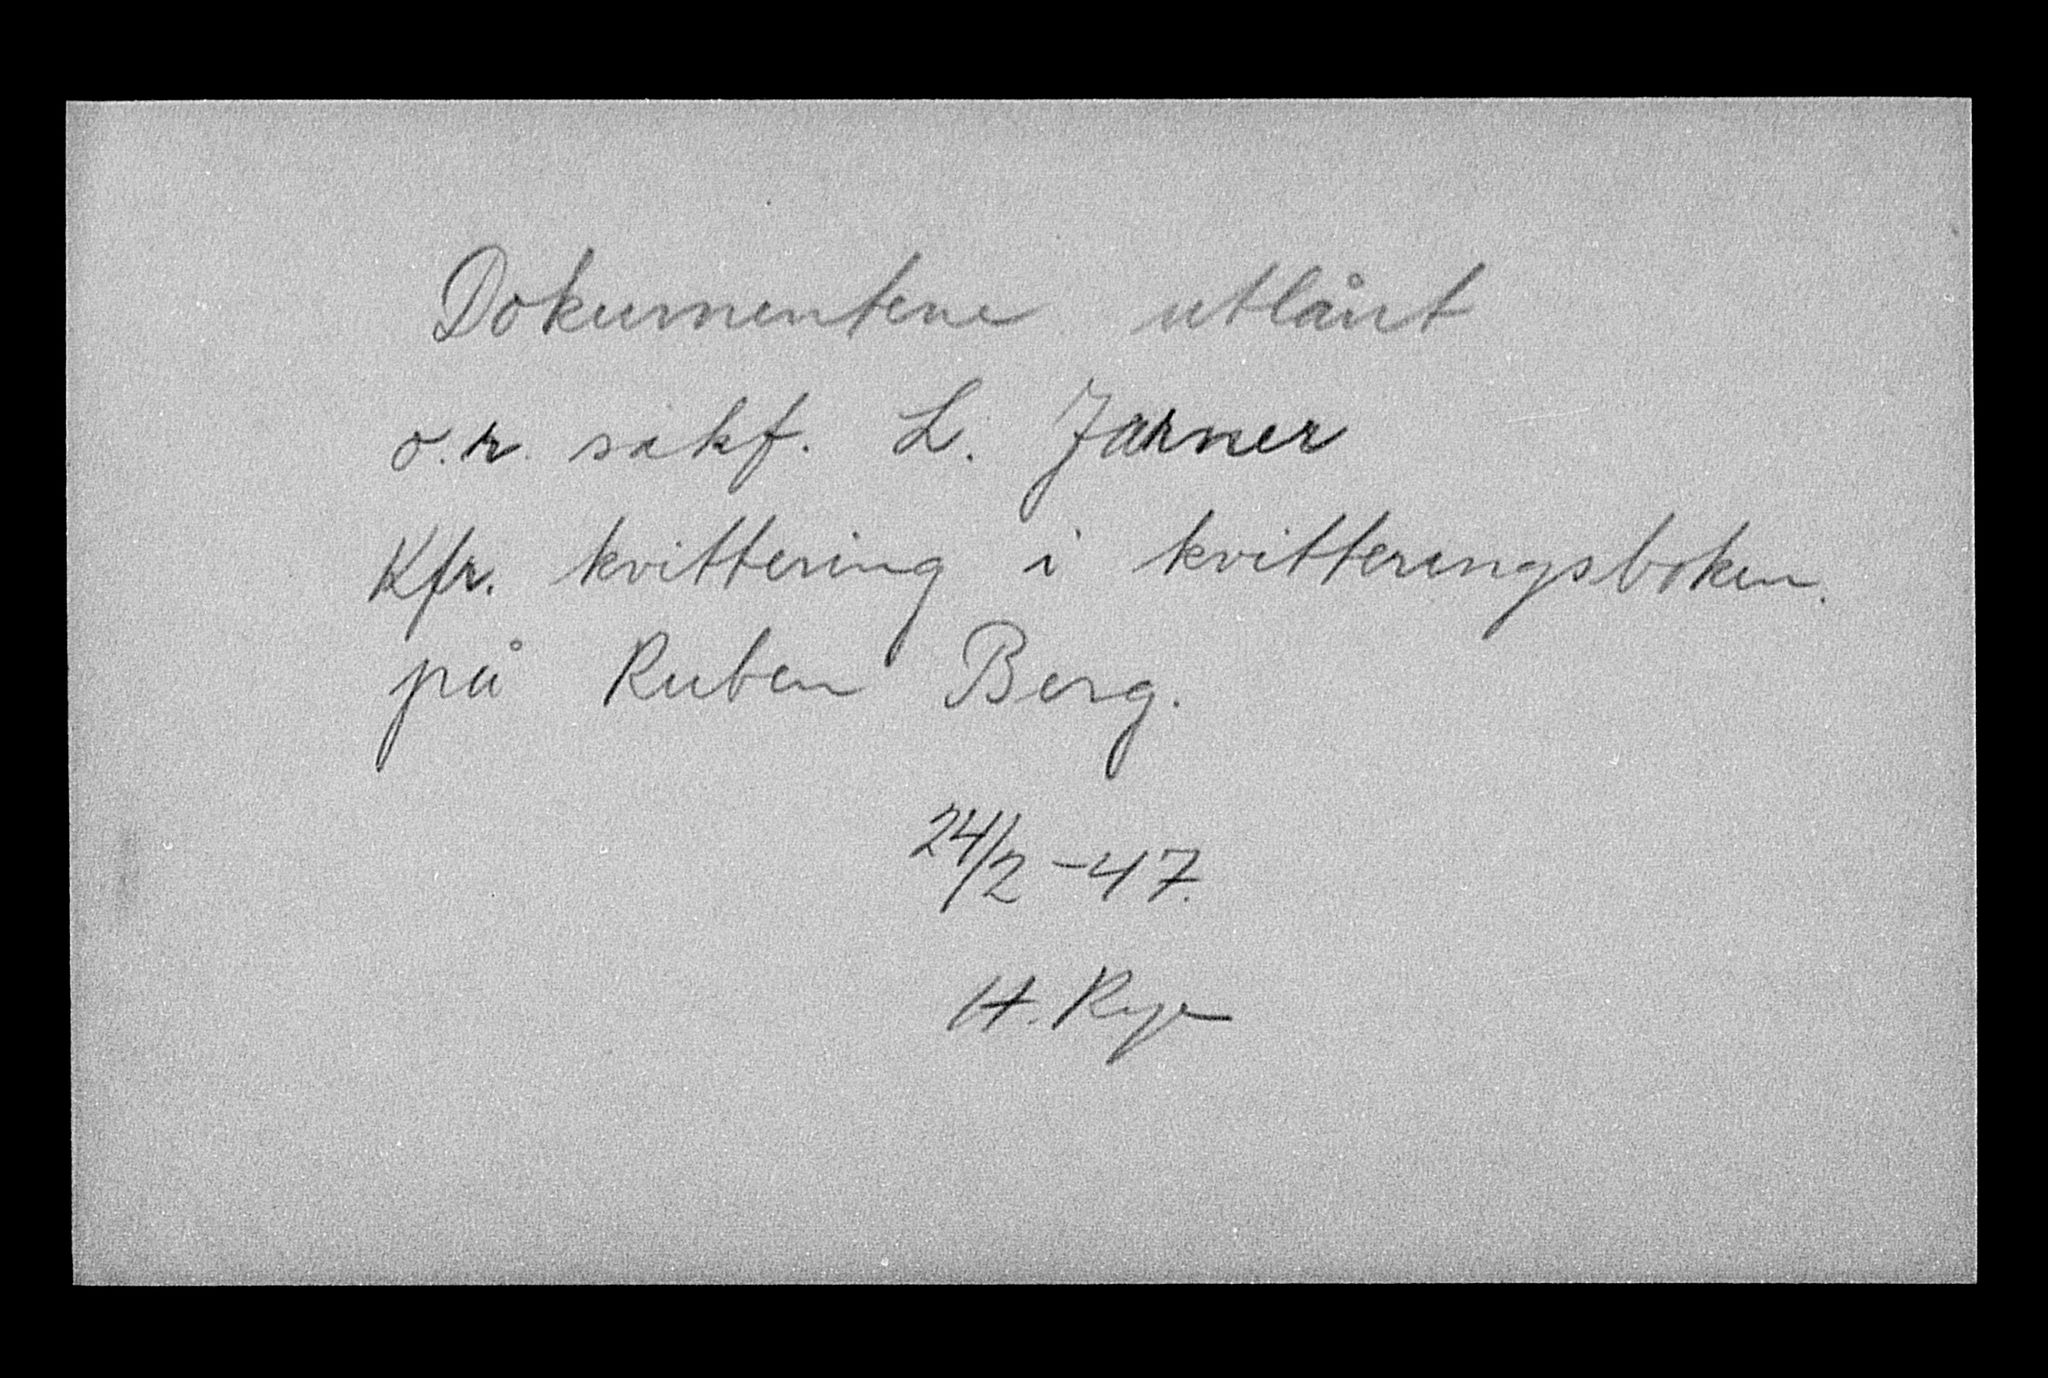 Dokumentene utlånt
o.r. sakf. L. Jarner
Kfr. kvittering i kvitteringsboken.
på Ruben Berg.
24/2 - 47.
H. Rye